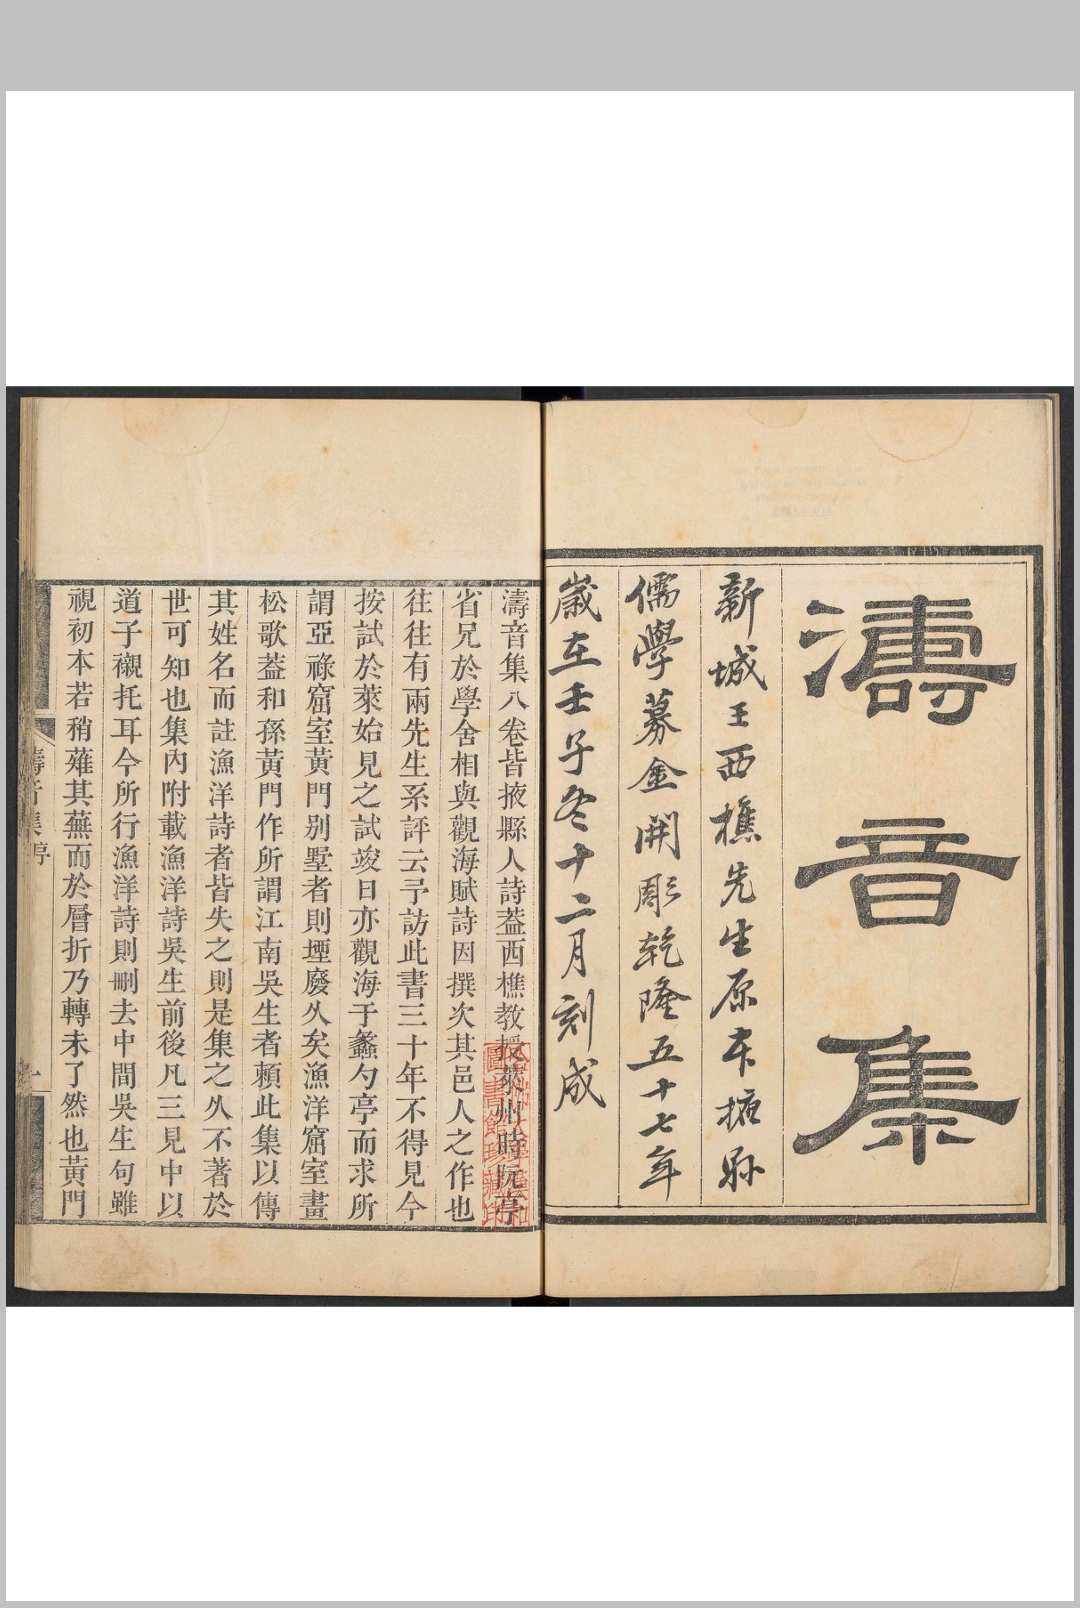 濤音集
新城王西樵先生原本掖縣
儒學募金開彫乾隆五十七年
歲在壬子冬十二月刻成
濤音集八卷皆掖縣人詩葢西樵教授萊州時阮亭
省兄於學舍相與觀海賦詩因撰次其邑人之作也
往往有兩先生系評云予訪此書三十年不得見今
按試於萊始見之試竣日亦觀海于蠡勺亭而求所
謂亞祿窟室黃門别墅者則堙廢久矣漁洋窟室畫
松歌葢和孫黃門作所謂江南吳生者賴此集以傳
其姓名而註漁洋詩者皆失之則是集之久不著於
世可知也集內附載漁洋詩吳生前後凡三見中以
道子襯托耳今所行漁洋詩則刪去中間吳生句雖
視初本若稍薙其蕪而於層折乃轉未了然也黃門
濤音集序
一
圖書館珍藏印